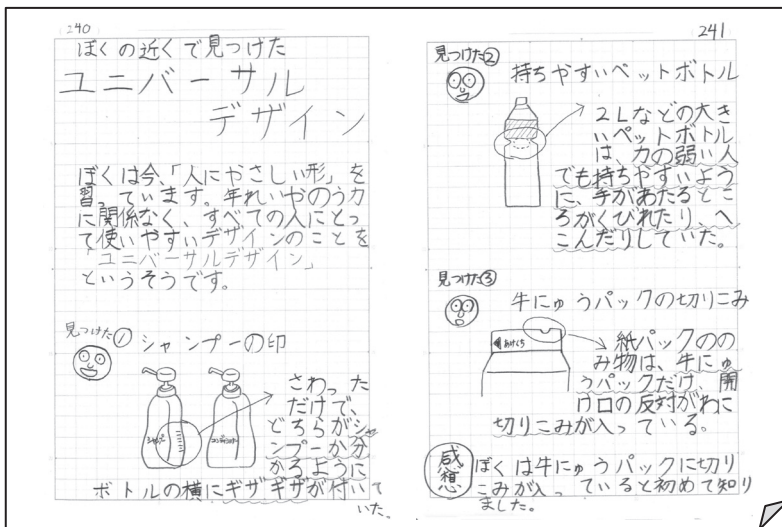 240
ぼくの近くで見つけた
ユニバーサル
デザイン
ぼくは今、「人にやさしい形」を
習っています。年れいやのう力
に関係なく、すべての人にとっ
て使いやすいデザインのことを
「ユニバーサルデザイン」
というそうです。
見つけた①
シャンプーの印
シャンプー
コンディショナー
さわった
だけで、
どちらがシャ
ンプーか分
かるように
ボトルの横にギザギザが付いて
いた。
241
見つけた②
持ちやすいペットボトル
2Lなどの大き
いペットボトル
は、力の弱い人
でも持ちやすいよう
に、手があたるとこ
ろがくびれたり、へ
こんだりしていた。
見つけた③
牛にゅうパックの切りこみ
あけくち
紙パックのの
み物は、牛にゅ
うパックだけ、開
け口の反対がわに
切りこみが入っている。
感想
ぼくは牛にゅうパックに切り
こみが入っていると初めて知り
ました。